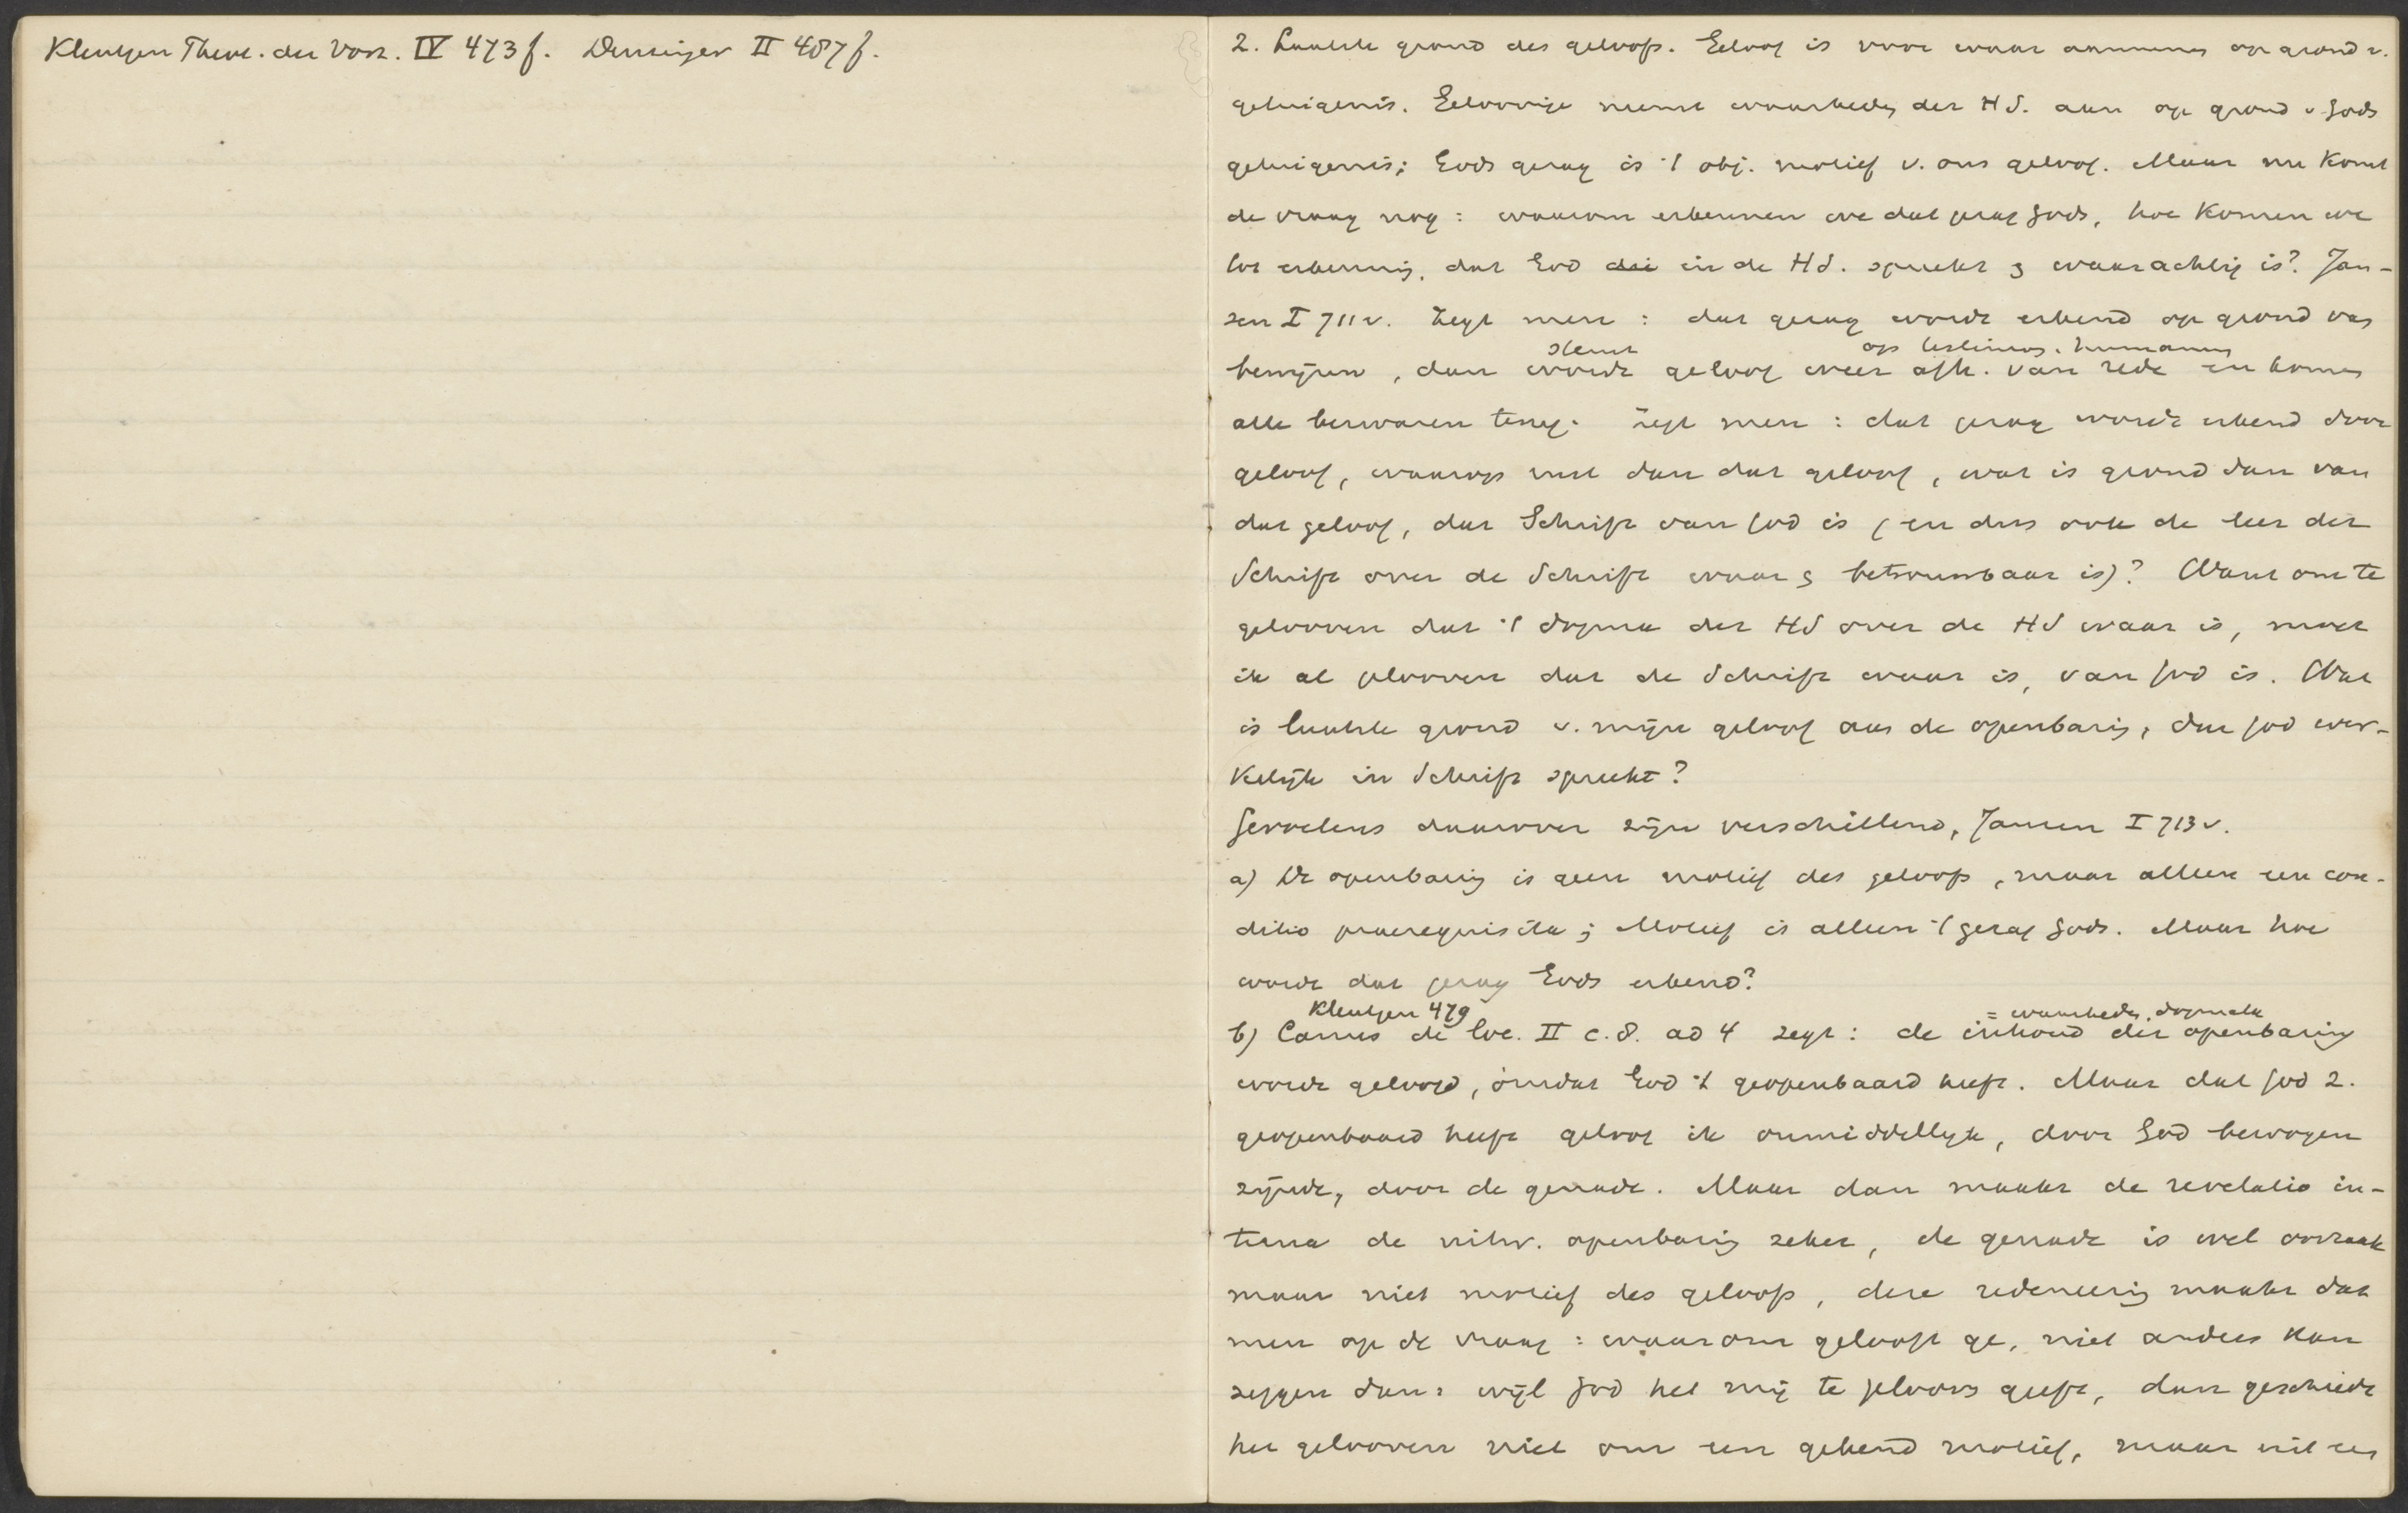 Kleutgen Theol. der Vorz. IV 473 f. Denzinger II 487 f.
2. Laatste grond des geloofs. Geloof is voor waar aannemen op grond v.
getuigenis. Geloovige neemt waarheden der H S. aan op grond v Gods
getuigenis; Gods gezag is 't obj. motief v. ons geloof. Maar nu komt
de vraag nog: waarom erkennen we dat gezag Gods, hoe komen we
tot erkenning, dat God in de H S. spreekt & waarachtig is? Jan-
sen I 711 v. Zegt men: dat gezag wordt erkend op grond van
steunt op testimon. humanum
bewijzen, dan wordt geloof weer afh. van rede en komen
alle bezwaren terug. Zegt men: dat gezag wordt erkend door
geloof, waarop rust dan dat geloof, wat is grond dan van
dat geloof, dat Schrift van God is (en dus ook de leer der
Schrift over de Schrift waar & betrouwbaar is)? Want om te
gelooven dat 't dogma der HS over de HS waar is, moet
ik al gelooven dat de Schrift waar is, van God is. Wat
is laatste grond v. mijn geloof aan de openbaring, dat God wer-
kelijk in Schrift spreekt?
Gevoelens daarover zijn verschillend, Jansen I 713 v.
a) De openbaring is geen motief des geloofs, maar alleen een con-
ditio praerequisita; Motief is alleen 't gezag Gods. Maar hoe
wordt dat gezag Gods erkend?
Kleutgen 479 = waarheden, dogmata
b) Canus de loc. II c. 8. ad 4 zegt: de inhoud der openbaring
wordt geloofd, omdat God 't geopenbaard heeft. Maar dat God z.
geopenbaard heeft geloof ik onmiddellijk, door God bewogen
zijnde, door de genade. Maar dan maakt de revelatio in-
terna de uitw. openbaring zeker, de genade is wel oorzaak
maar niet motief des geloofs, deze redeneering maakt dat
men op de vraag: waarom gelooft ge, niet anders kan
zeggen dan: wijl God het mij te gelooven geeft, dan geschiedt
het gelooven niet om een gekend motief, maar uit een